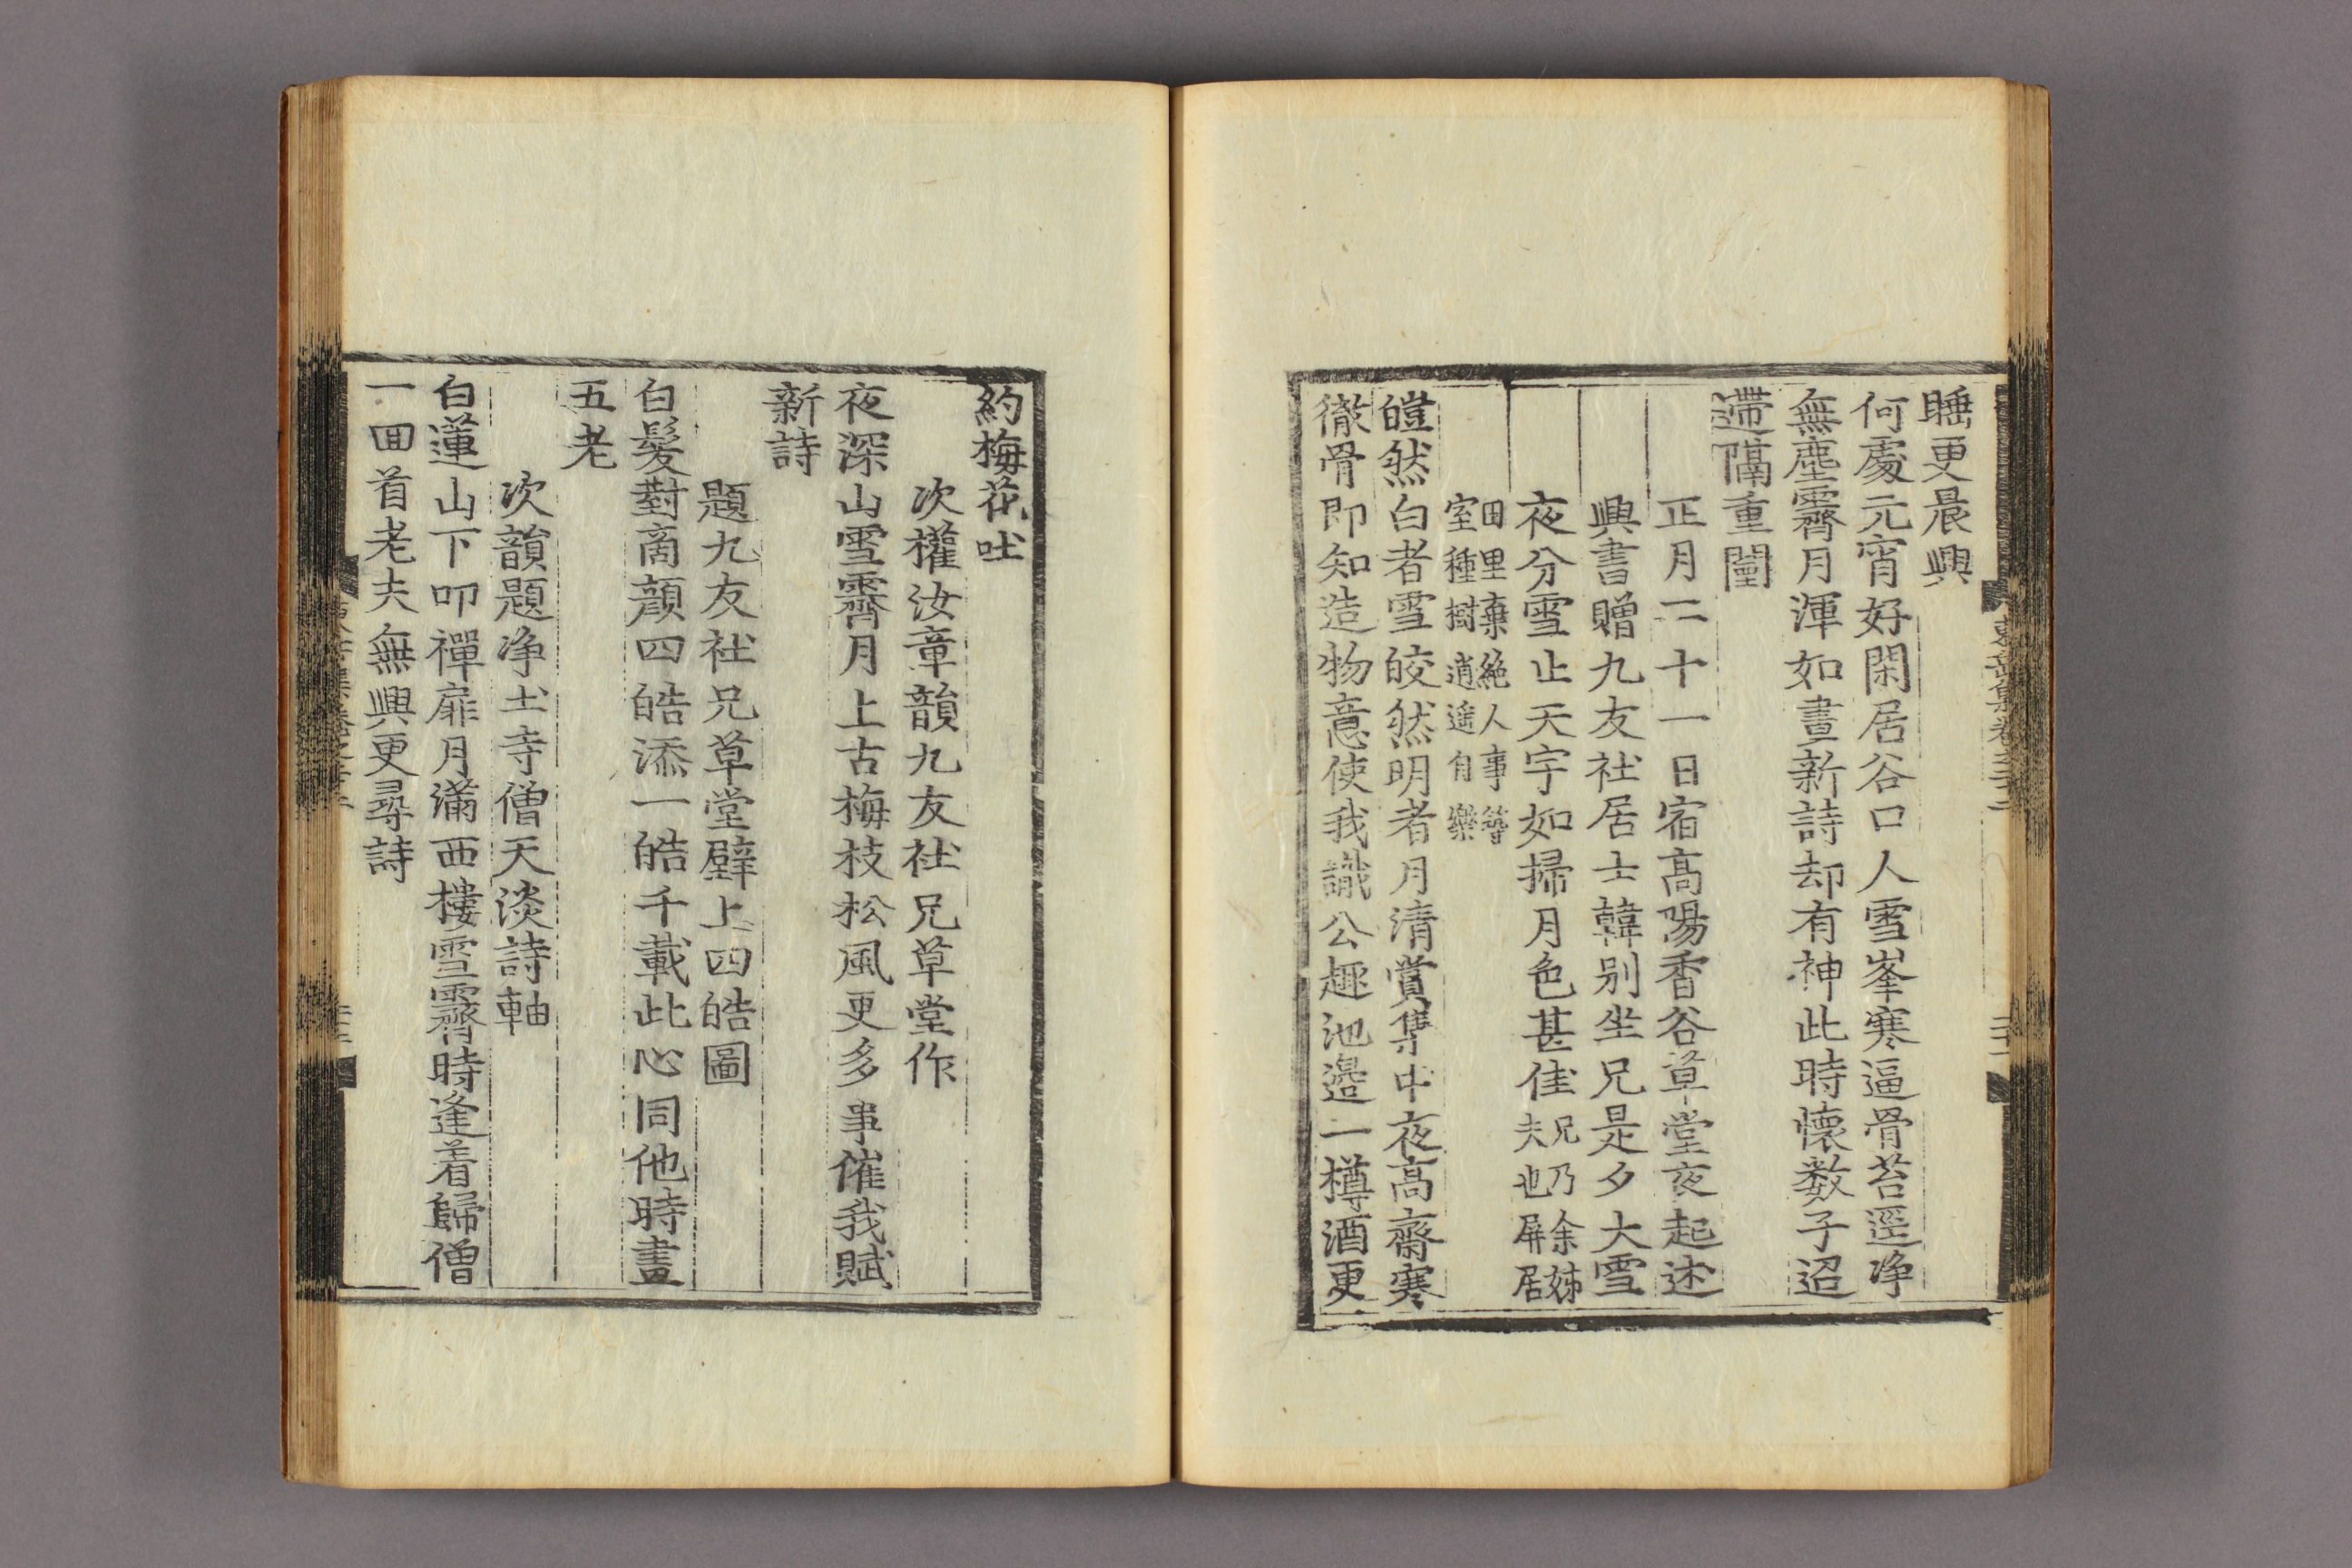 睡更晨興
何處元宵好閑居谷口人雪峯寒逼骨苔逕净
無塵霽月渾如晝新詩却有神此時懷数子迢
遰隔重闉
正月二十一日宿高陽香谷草堂夜起述
興書贈九友社居士韓别坐兄是夕大雪
夜分雪止天宇如掃月色甚佳兄乃余姊
夫也屏居
田里棄絶人事築
室種樹逍遥自樂
皚然白者雪皎然明者月清賞隻中夜高齋寒
徹骨即知造物意使我識公趣池邉一樽酒更
約梅花吐
次權汝章韻九友社兄草堂作
夜深山雪霽月上古梅枝松風更多事催我賦
新詩
題九友社兄草堂壁上四皓圖
白髪對商顔四皓添一皓千載此心同他時畫
五老
次韻題净土寺僧天淡詩軸
白蓮山下叩禪扉月滿西樓雪霽時逢着歸僧
一回首老夫無興更尋詩